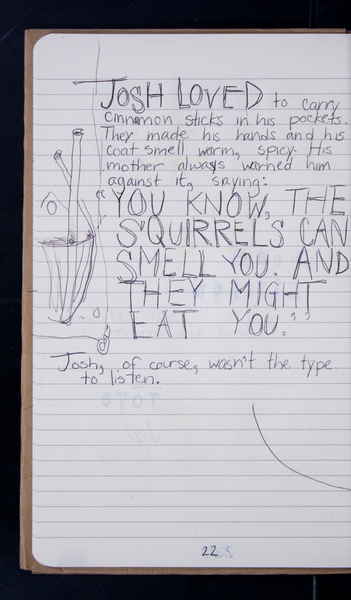 JOSH LOVED to carry
cinnamon sticks in his pockets.
They made his hands and his
coat smell warm, spicy. His
mother always warned him
against it, saying:
"YOU KNOW, THE
SQUIRRELS CAN
SMELL YOU. AND
THEY MIGHT
EAT YOU."
Josh, of course, wasn't the type
to listen.
22